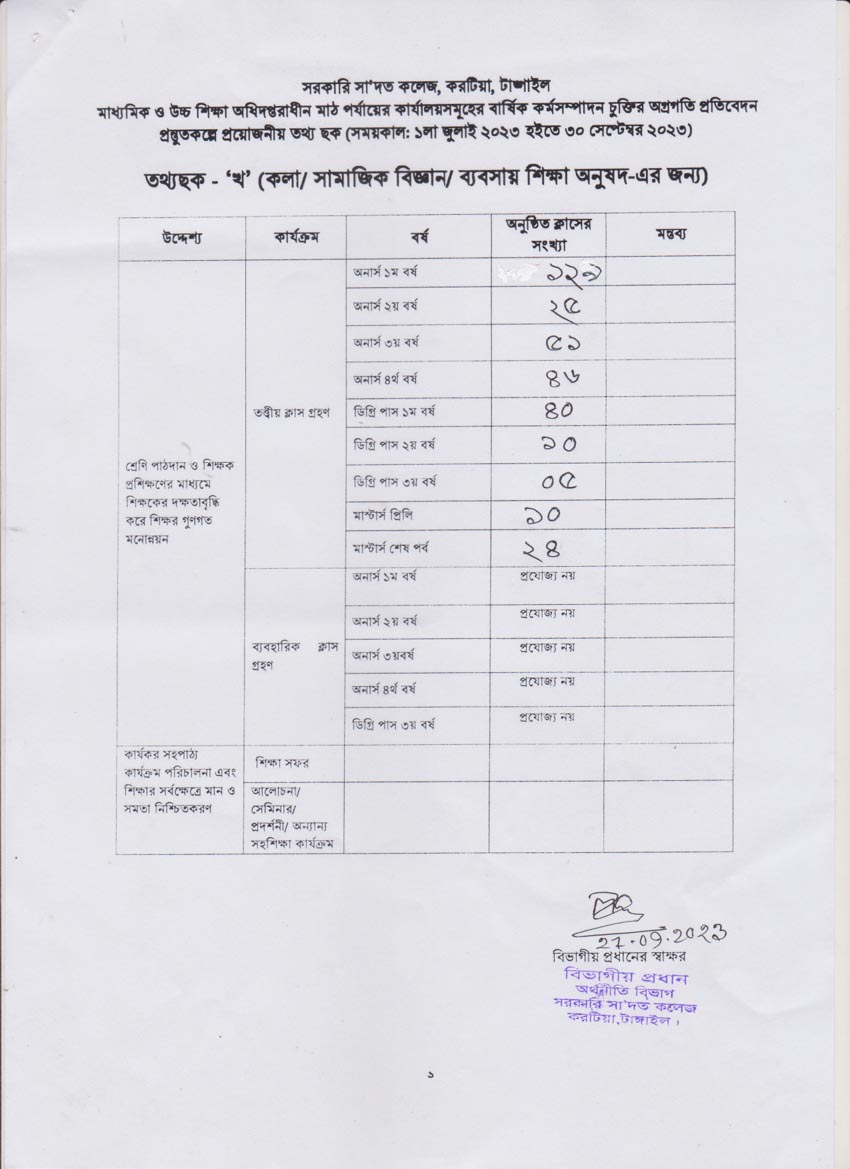 সরকারি সা'দত কলেজ, করটিয়া, টাঙ্গাইল
মাধ্যমিক ও উচ্চ শিক্ষা অধিদপ্তরাধীন মাঠ পর্যায়ের কার্যালয়সমূহের বার্ষিক কর্মসম্পাদন চুক্তির অগ্রগতি প্রতিবেদন
প্রস্তুতকল্পে প্রয়োজনীয় তথ্য ছক (সময়কাল: ১লা জুলাই ২০২৩ হইতে ৩০ সেপ্টেম্বর ২০২৩)
তথ্যছক - ‘খ’ (কলা/ সামাজিক বিজ্ঞান/ ব্যবসায় শিক্ষা অনুষদ-এর জন্য)
উদ্দেশ্য কার্যক্রম বর্ষ অনুষ্ঠিত ক্লাসের সংখ্যা মন্তব্য
শ্রেণি পাঠদান ও শিক্ষক
প্রশিক্ষণের মাধ্যমে
শিক্ষকের দক্ষতাবৃদ্ধি
করে শিক্ষর গুণগত
মনোন্নয়ন
তত্ত্বীয় ক্লাস গ্রহণ
অনার্স ১ম বর্ষ ১২১
অনার্স ২য় বর্ষ ২৫
অনার্স ৩য় বর্ষ ৫১
অনার্স ৪র্থ বর্ষ ৪৬
ডিগ্রি পাস ১ম বর্ষ ৪০
ডিগ্রি পাস ২য় বর্ষ ১০
ডিগ্রি পাস ৩য় বর্ষ ০৫
মাস্টার্স প্রিলি ১০
মাস্টার্স শেষ পর্ব ২৪
ব্যবহারিক ক্লাস
গ্রহণ
অনার্স ১ম বর্ষ প্রযোজ্য নয়
অনার্স ২য় বর্ষ প্রযোজ্য নয়
অনার্স ৩য়বর্ষ প্রযোজ্য নয়
অনার্স ৪র্থ বর্ষ প্রযোজ্য নয়
ডিগ্রি পাস ৩য় বর্ষ প্রযোজ্য নয়
কার্যকর সহপাঠ্য
কার্যক্রম পরিচালনা এবং
শিক্ষার সর্বক্ষেত্রে মান ও
সমতা নিশ্চিতকরণ
শিক্ষা সফর
আলোচনা/
সেমিনার/
প্রদর্শনী/ অন্যান্য
সহশিক্ষা কার্যক্রম
27.09.2023
বিভাগীয় প্রধানের স্বাক্ষর
বিভাগীয় প্রধান
অর্থনীতি বিভাগ
সরকারি সা'দত কলেজ
করটিয়া,টাঙ্গাইল।
১